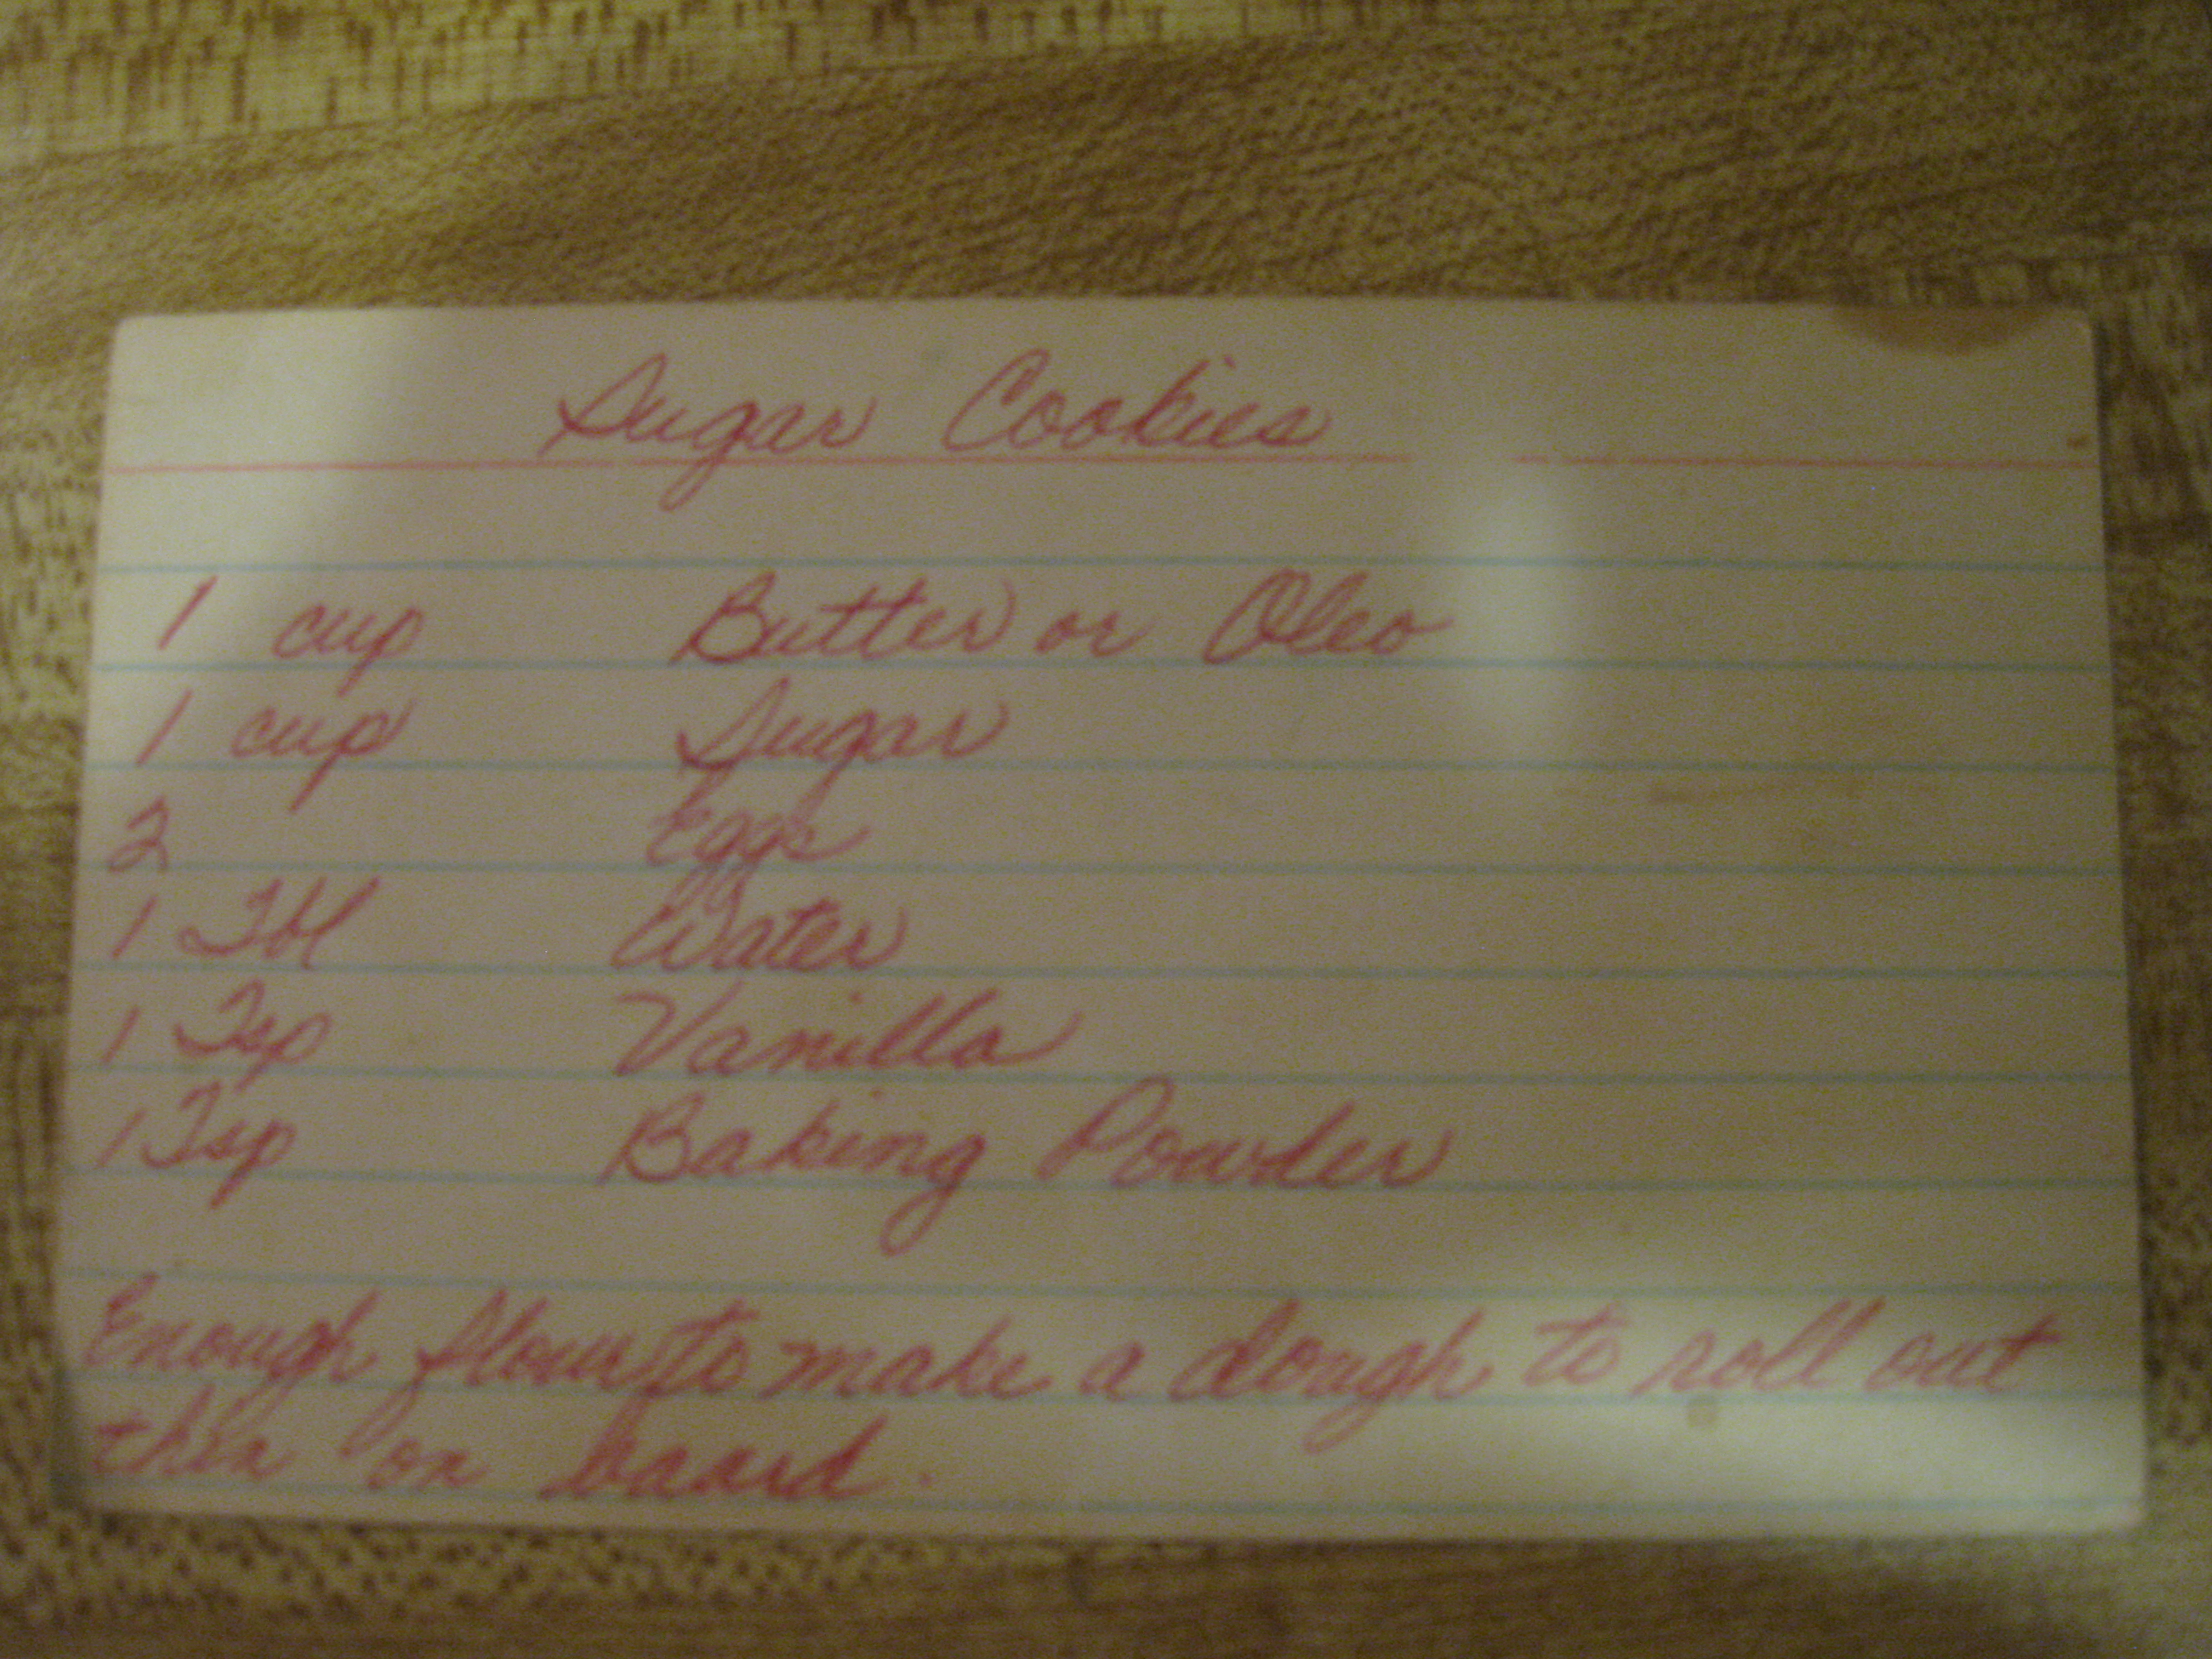 Sugar Cookies
1 cup Butter or Oleo
1 cup Sugar
2 Eggs
1 Tbl Water
1 Tsp Vanilla
1 Tsp Baking Powder
Enough flour to make a dough to roll out
thin on board.